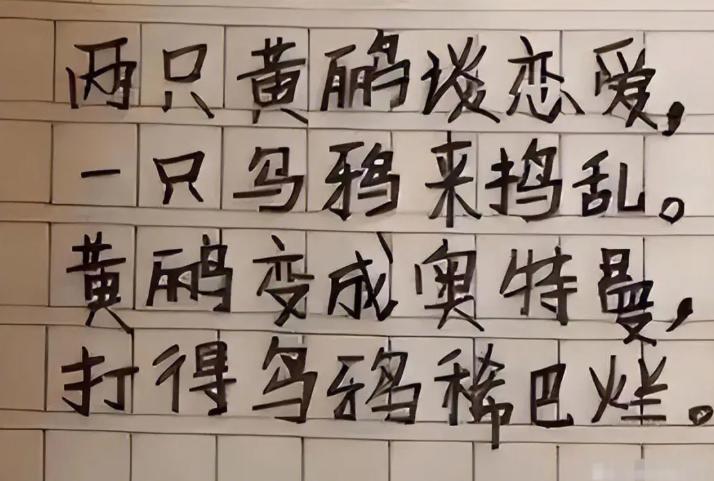 两只黄鹂谈恋爱，
一只乌鸦来捣乱。
黄鹂变成奥特曼，
打得乌鸦稀巴烂。